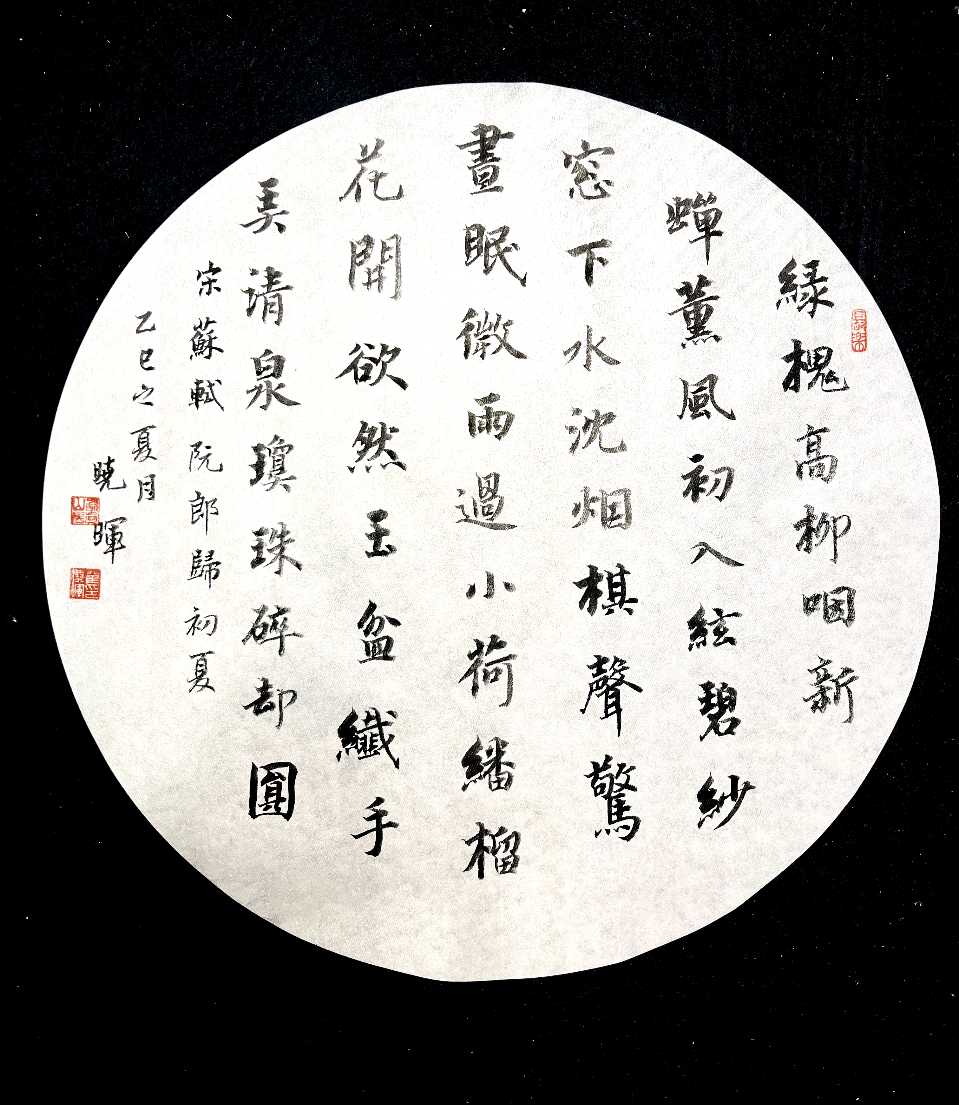 綠槐高柳咽新
蟬薰風初入絃碧紗
窓下水沈烟棋聲驚
晝眠微雨過小荷繙榴
花開欲然玉盆纖手
弄清泉瓊珠碎却圓
宋蘇軾阮郎歸初夏
乙巳之夏月
曉暉